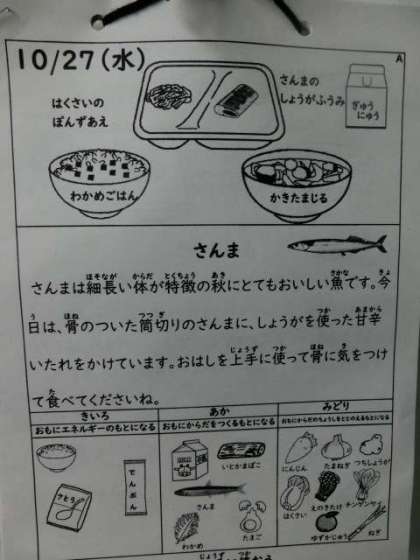 10/27(水)
A
はくさいの
ぽんずあえ
さんまの
しょうがふうみ
ぎゅう
にゅう
わかめごはん
かきたまじる
さんま
さんまは細長い体が特徴の秋にとてもおいしい魚です。今
日は、骨のついた筒切りのさんまに、しょうがを使った甘辛
いたれをかけています。おはしを上手に使って骨に気をつけ
て食べてくださいね。
きいろ
おもにエネルギーのもとになる
さとう
でんぷん
あか
おもにからだをつくるもとになる
いとかまぼこ
さんま
わかめ
たまご
みどり
おもにからだのちょうしをととのえるもとになる
にんじん
たまねぎ
つちしょうが
はくさい
えのきたけ
チンゲンサイ
ゆずかじゅう
ねぎ